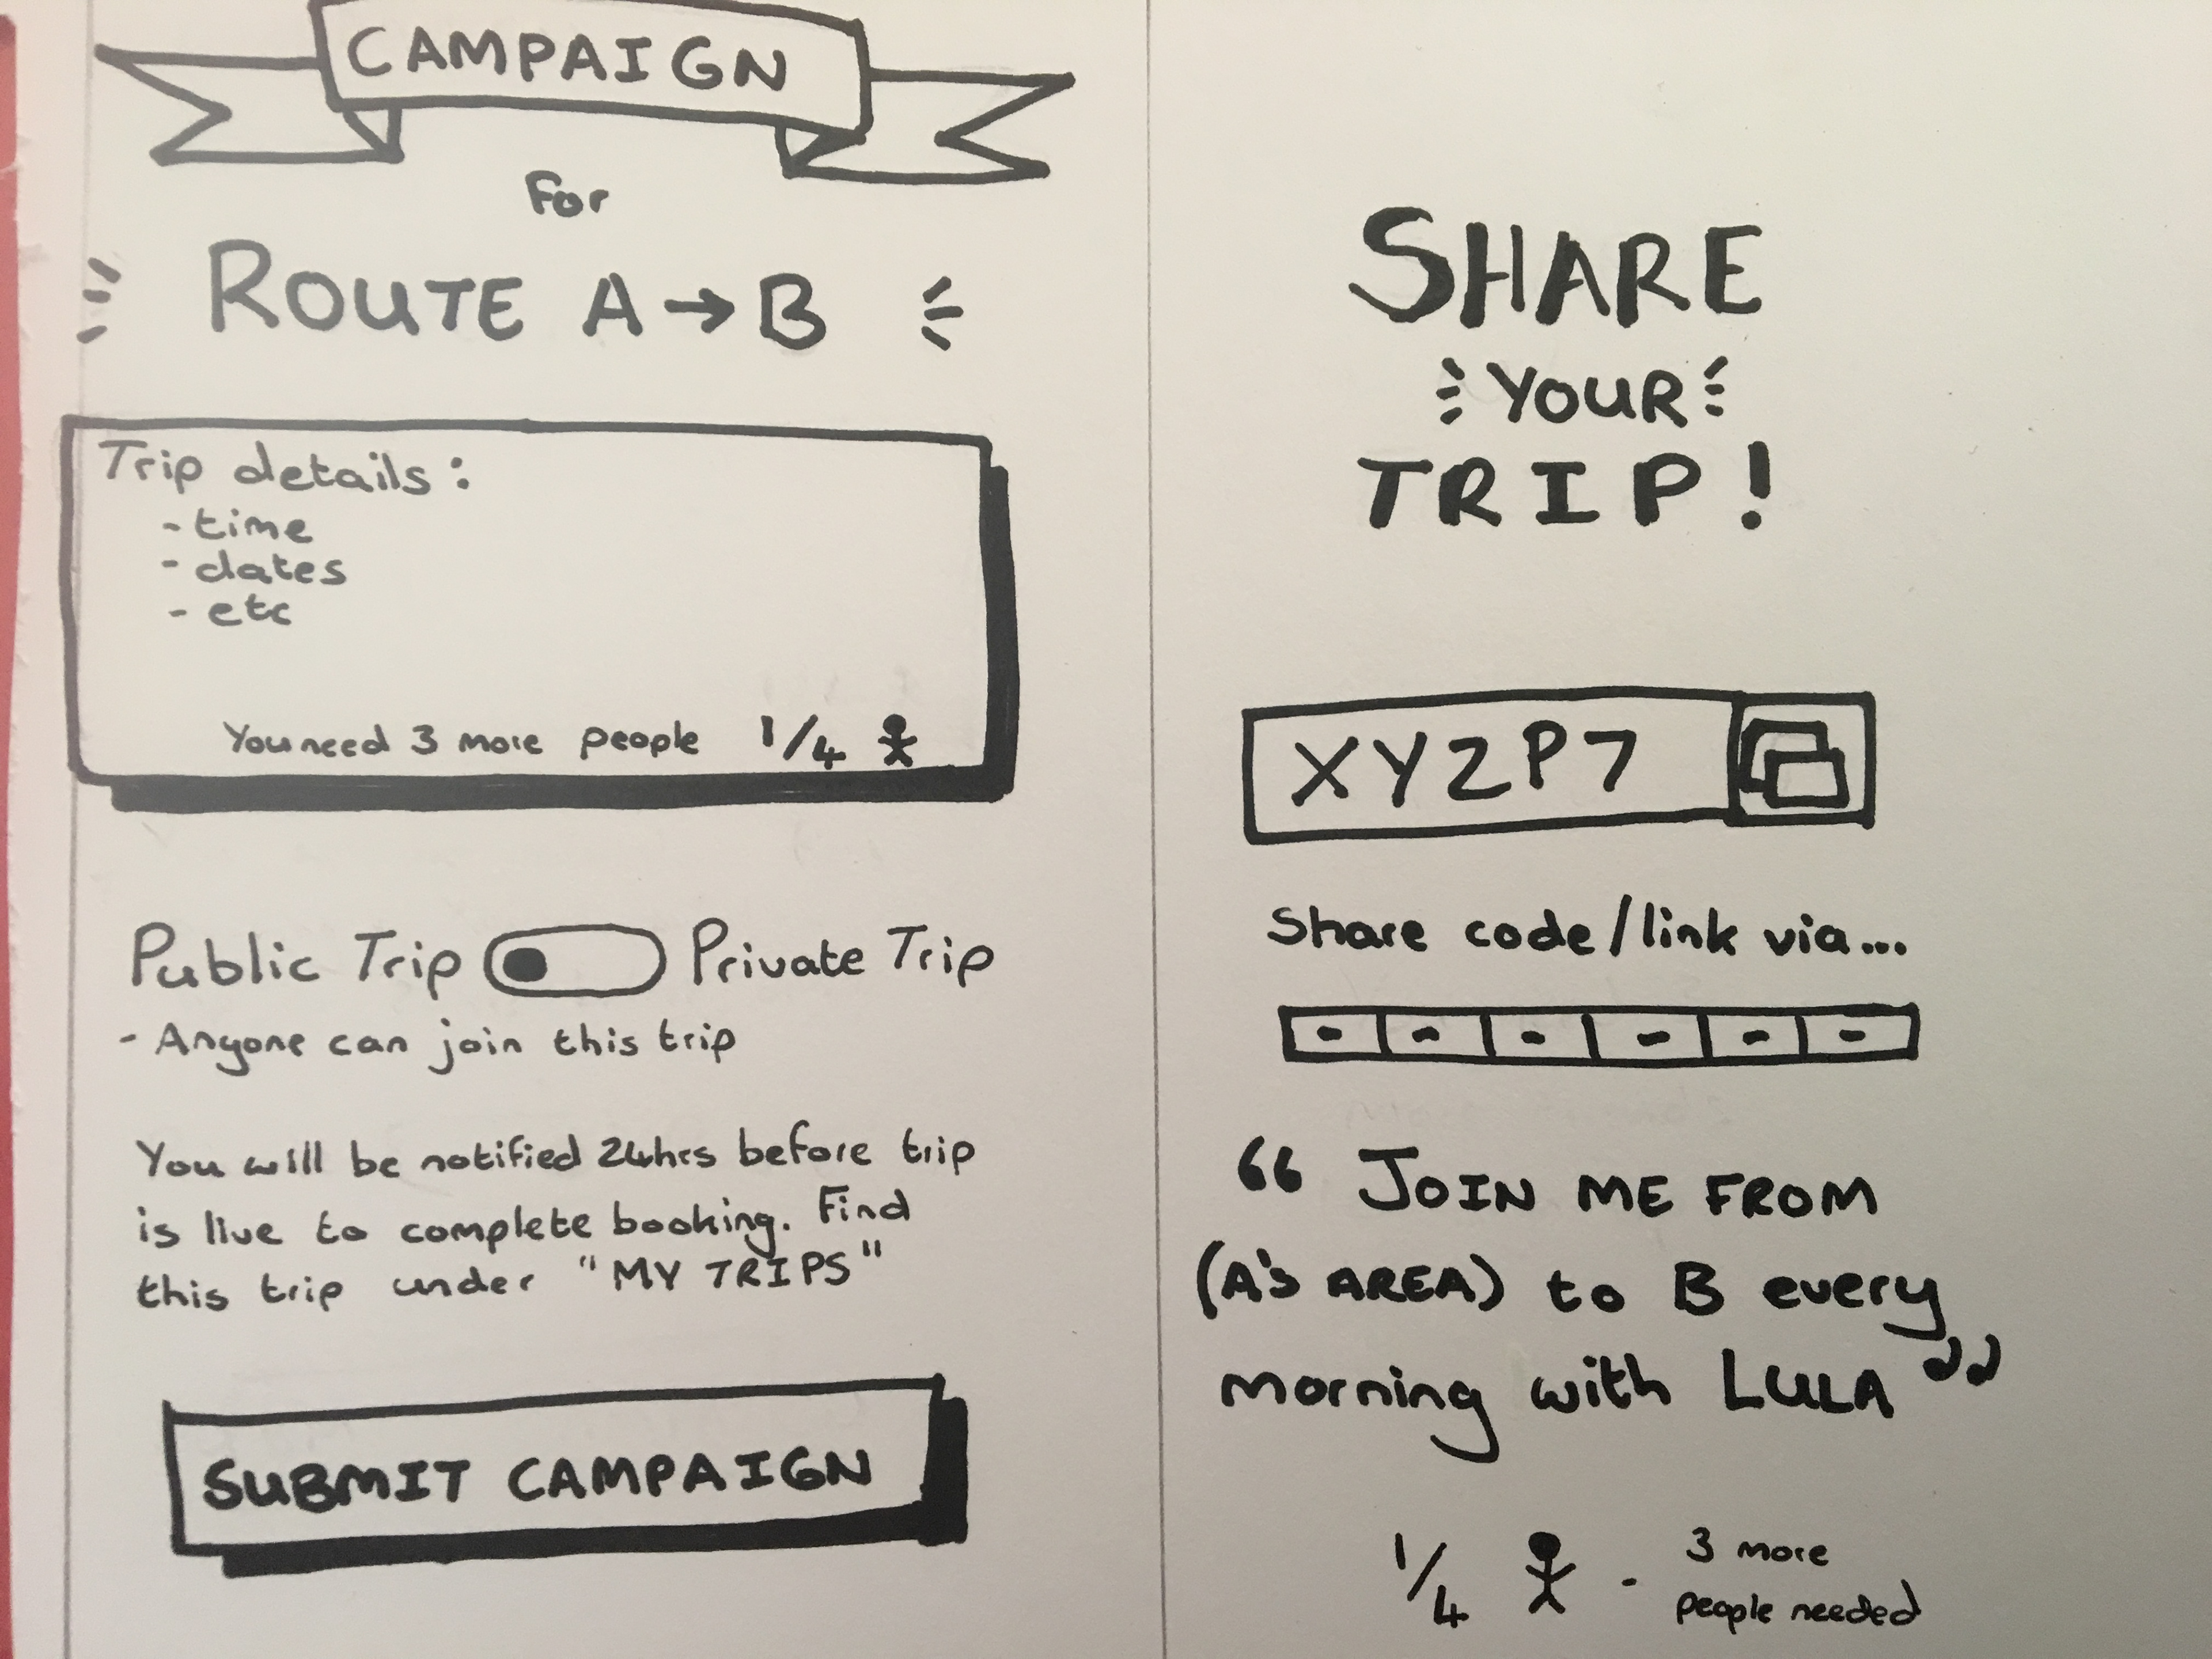 CAMPAIGN
For
ROUTE A → B
Trip details:
- time
- dates
- etc
You need 3 more people 1/4
Public Trip Private Trip
- Anyone can join this trip
You will be notified 24hrs before trip
is live to complete booking. Find
this trip under "MY TRIPS"
SUBMIT CAMPAIGN
SHARE
YOUR
TRIP!
XYZP7
Share code/link via...
"JOIN ME FROM
(A's AREA) to B every
morning with LULA"
1/4 - 3 more
people needed